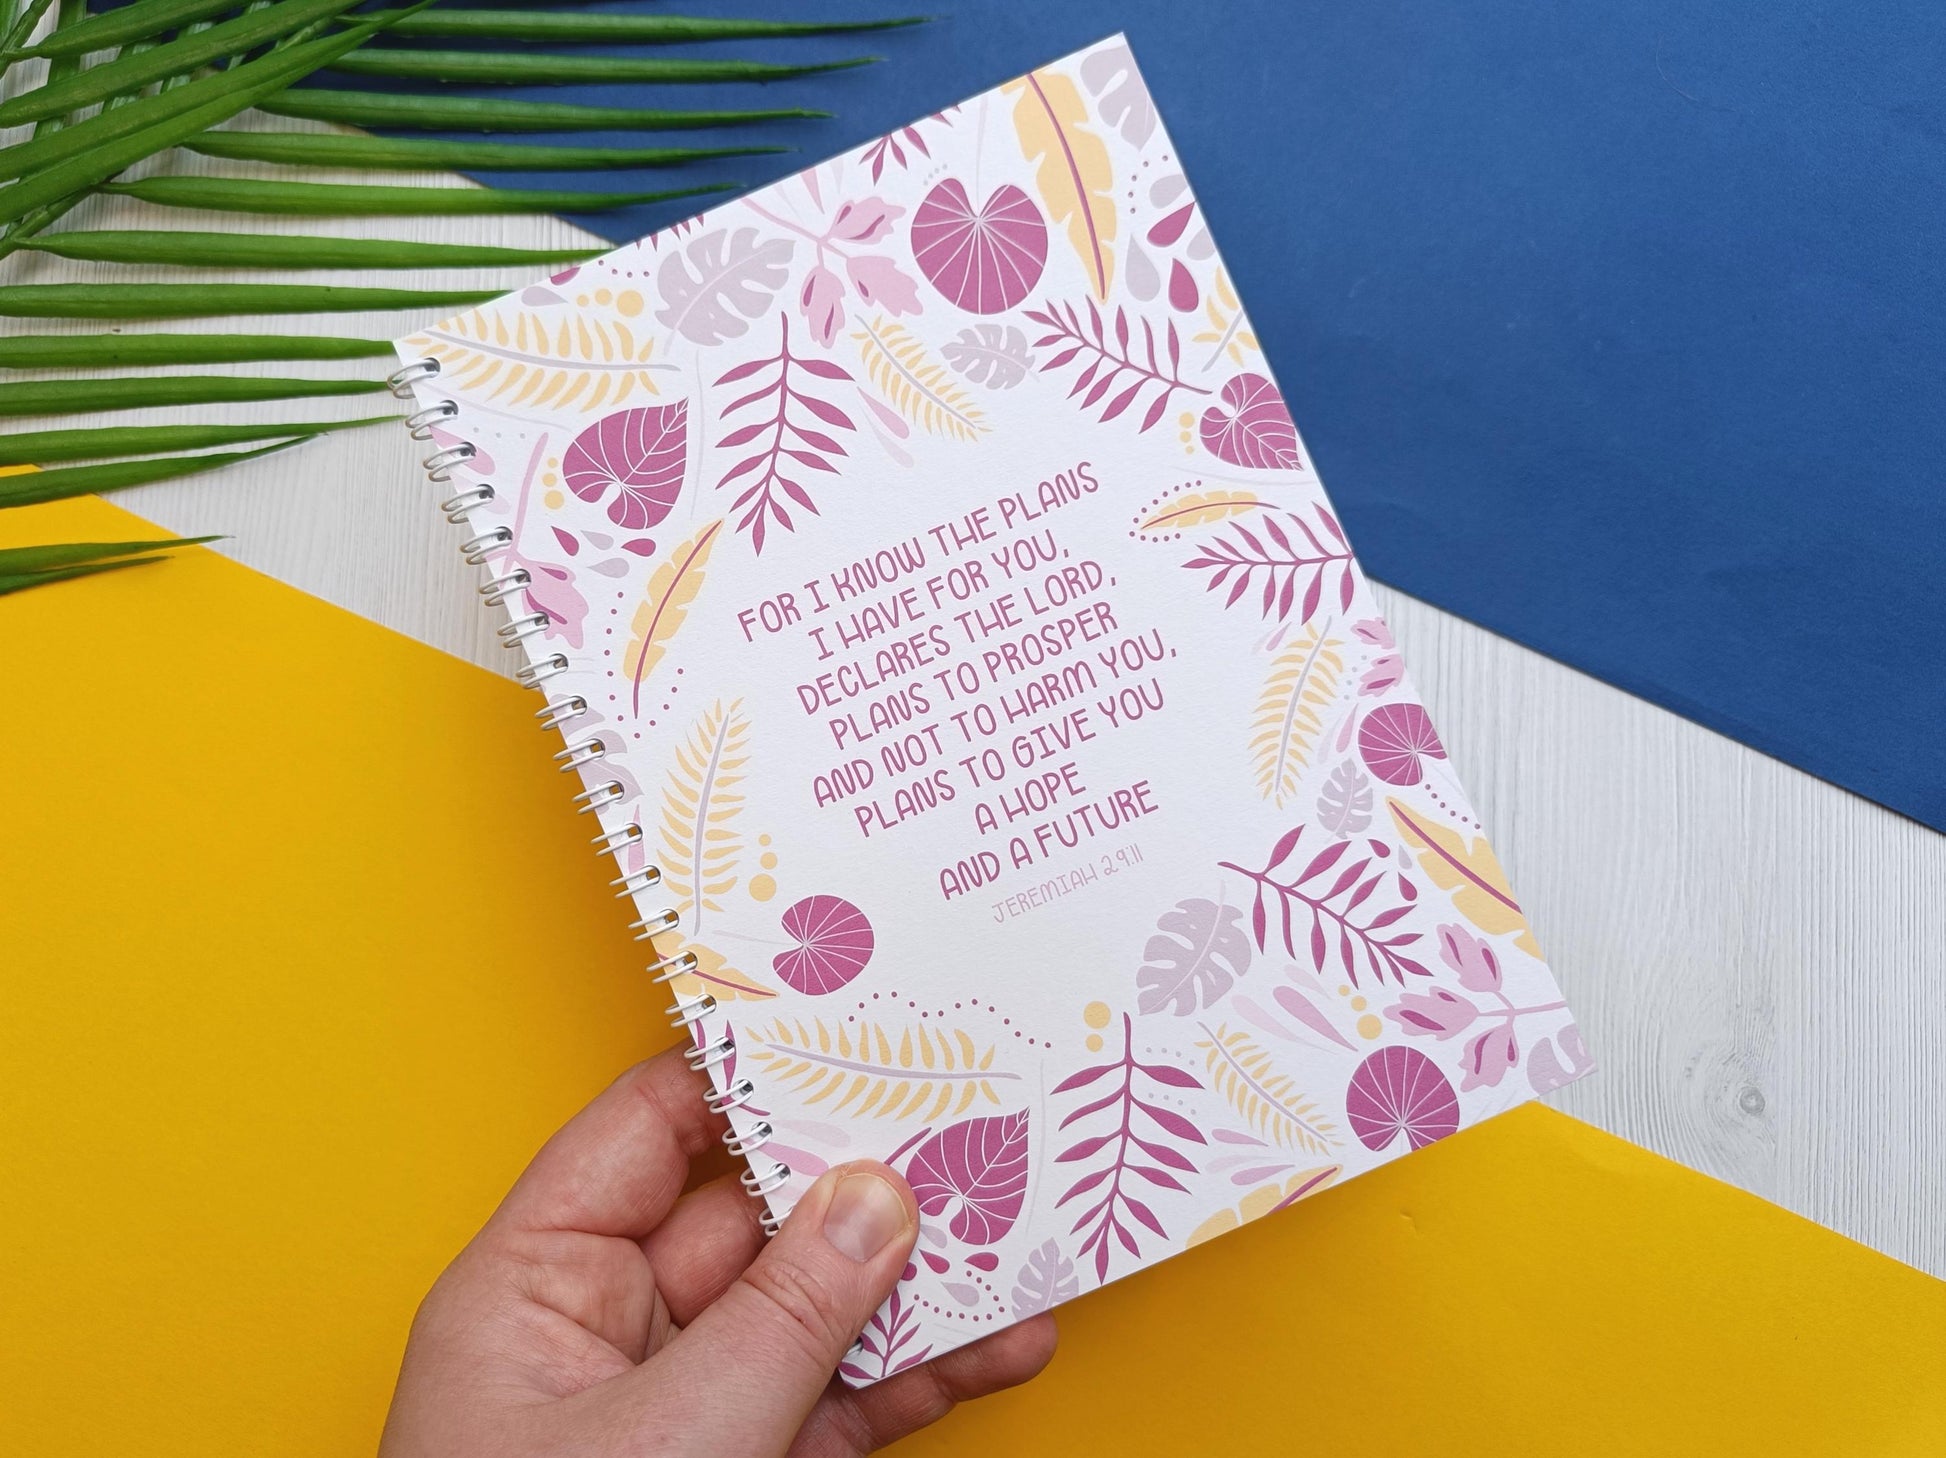 FOR I KNOW THE PLANS
I HAVE FOR YOU,
DECLARES THE LORD,
PLANS TO PROSPER
AND NOT TO HARM YOU,
PLANS TO GIVE YOU
A HOPE
AND A FUTURE
JEREMIAH 29:11